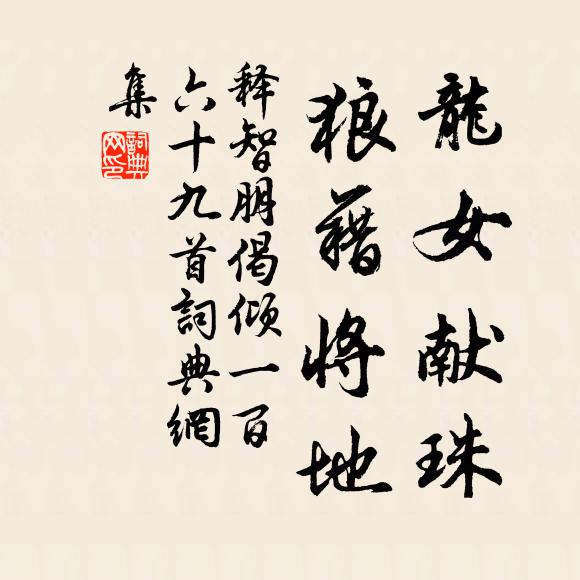 龍女献珠
狼藉將地
释智朋偈倾一百
六十九首詞典網
集
詞典網印